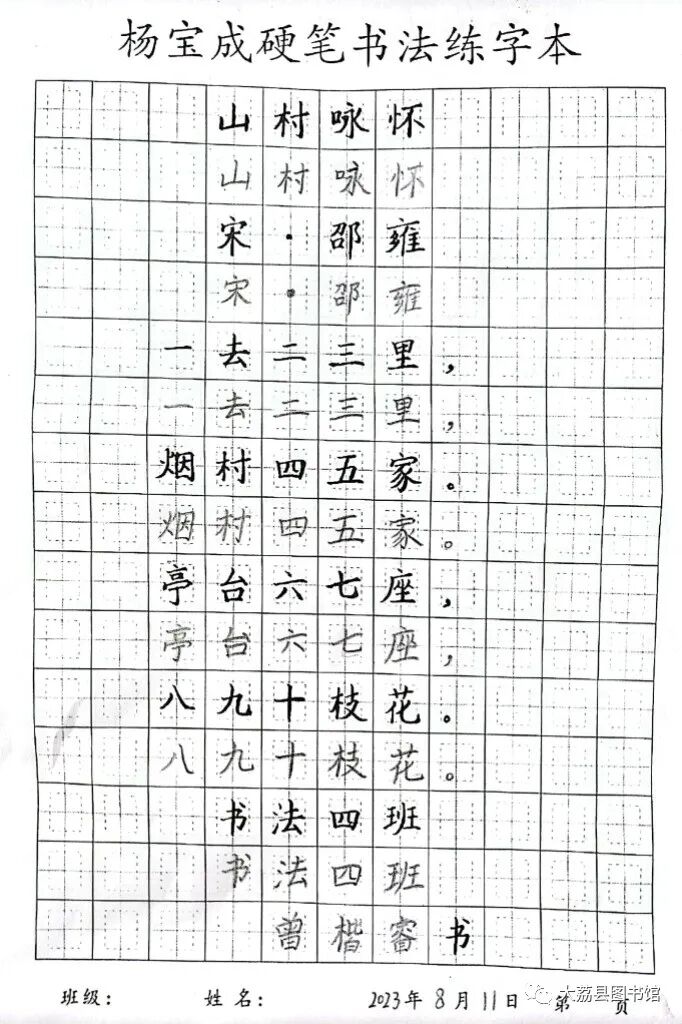 杨宝成硬笔书法练字本
山村咏怀
山村咏怀
宋·邵雍
宋·邵雍
一去二三里，
一去二三里，
烟村四五家。
烟村四五家。
亭台六七座，
亭台六七座，
八九十枝花。
八九十枝花。
书法四班
书法四班
曾楷睿书
班级： 姓名： 2023年8月11日 第 页
大荔县图书馆